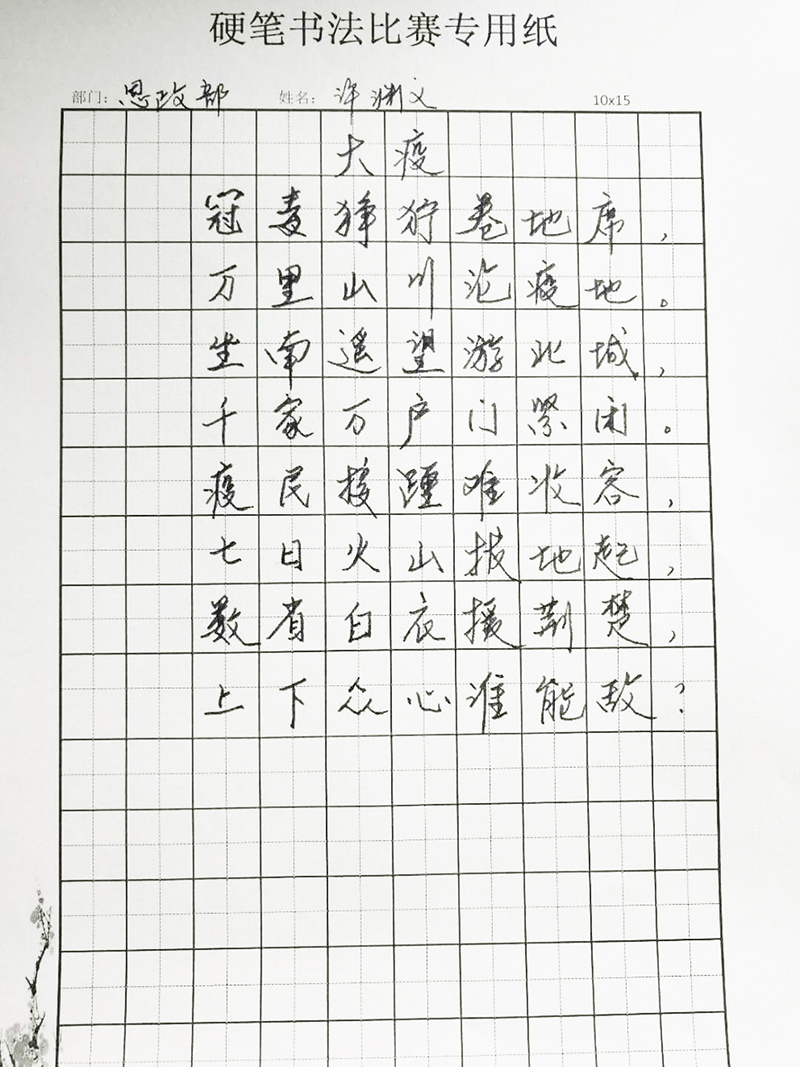 硬笔书法比赛专用纸
部门：思政部 姓名：许渊文 10x15
大疫
冠毒狰狞卷地席，
万里山川沦疫地。
坐南遥望游北城，
千家万户门紧闭。
疫民接踵难收容，
七日火山拔地起，
数省白衣援荆楚，
上下众心谁能敌？